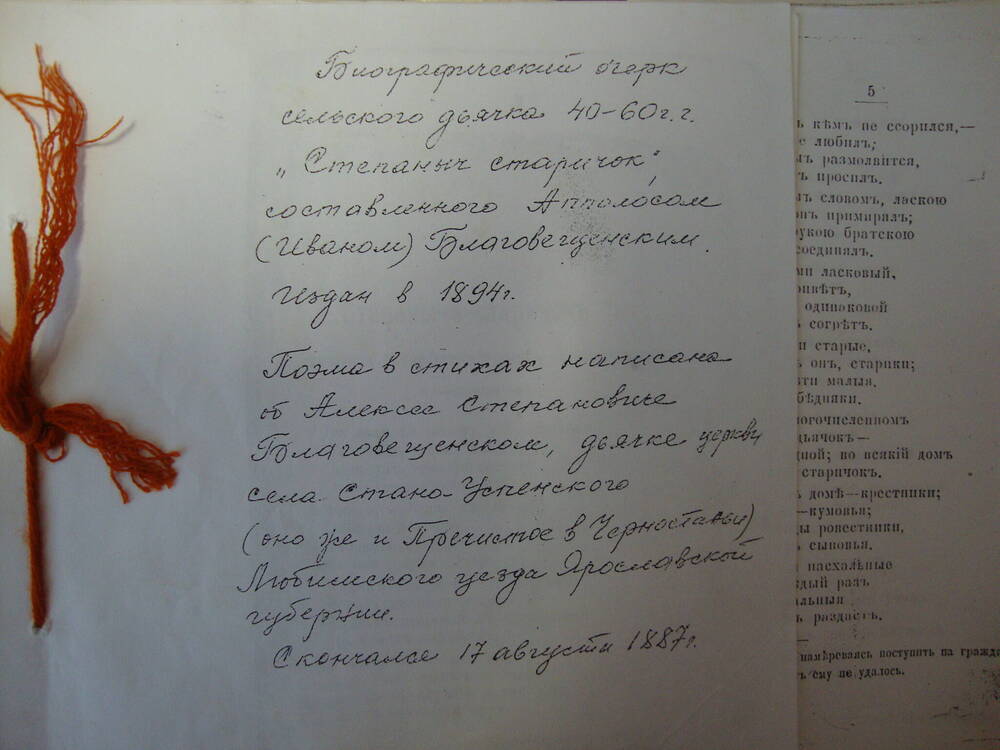 Биографический очерк
сельского дьячка 40-60г.г.
„Степаныч старичок",
составленного Апполосом
(Иваном) Благовещенским.
Издан в 1894г.
Поэма в стихах написана
об Алексее Степановиче
Благовещенском, дьячке церкви
села Стано-Успенского
(оно же и Пречистое в Черностанье)
Любимского уезда Ярославской
губернии.
Скончался 17 августа 1887г.
5
ъ кѣмъ не ссорился,—
любилъ;
размолвится,
ъ просилъ.
словомъ, ласкою
примирялъ;
рукою братскою
соединялъ.
ласковый,
одинаковой
согрѣтъ.
старые,
онъ, старики;
малыя,
бѣдняки.
ногочисленномъ
дьячокъ—
ной; во всякій домъ
старичокъ.
домѣ—крестники;
—кумовья;
ровестники,
сыновья.
пасхальные
ждый разъ
альныя
раздастъ.
намѣреваясь поступить на гражд
ему не удалось.